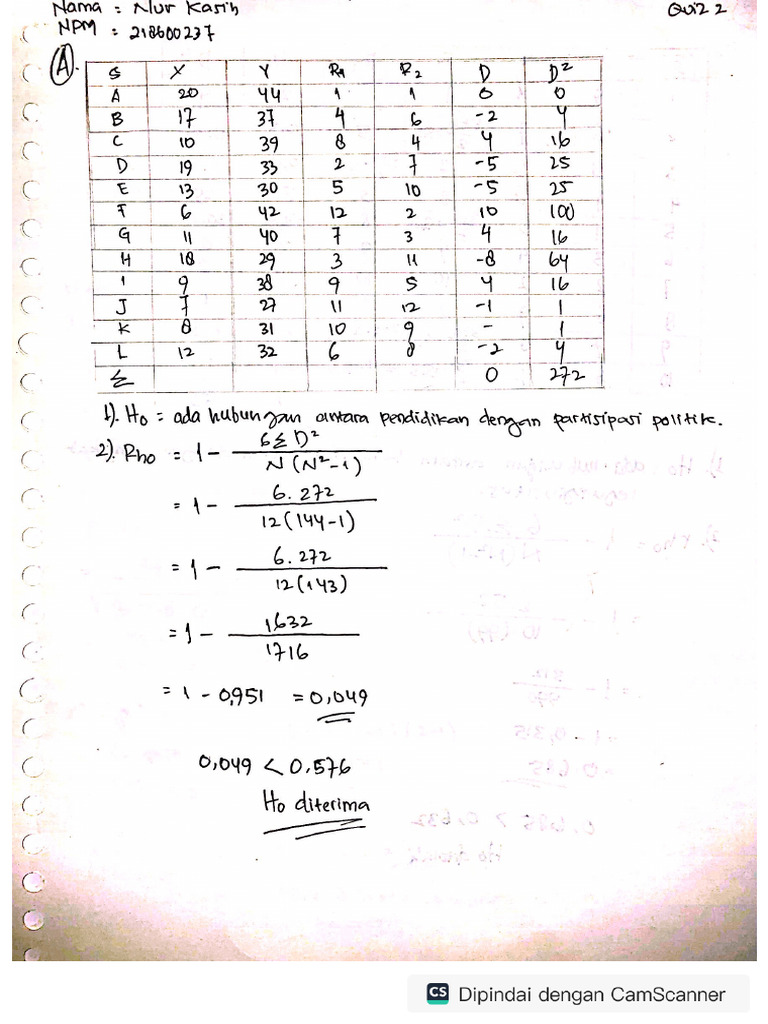 Nama : Nur Kasih
Quiz 2
NPM : 218600237
A.
S X Y R1 R2 D D²
A 20 44 1 1 0 0
B 17 37 4 6 -2 4
C 10 39 8 4 4 16
D 19 33 2 7 -5 25
E 13 30 5 10 -5 25
F 6 42 12 2 10 100
G 11 40 7 3 4 16
H 18 29 3 11 -8 64
I 9 38 9 5 4 16
J 7 27 11 12 -1 1
K 8 31 10 9 - 1
L 12 32 6 8 -2 4
Σ 0 272
1). Ho = ada hubungan antara pendidikan dengan partisipasi politik.
2). Rho = 1 - 6ΣD² / N(N²-1)
= 1 - 6.272 / 12(144-1)
= 1 - 6.272 / 12(143)
= 1 - 1632 / 1716
= 1 - 0,951 = 0,049
0,049 < 0.576
Ho diterima
CS Dipindai dengan CamScanner